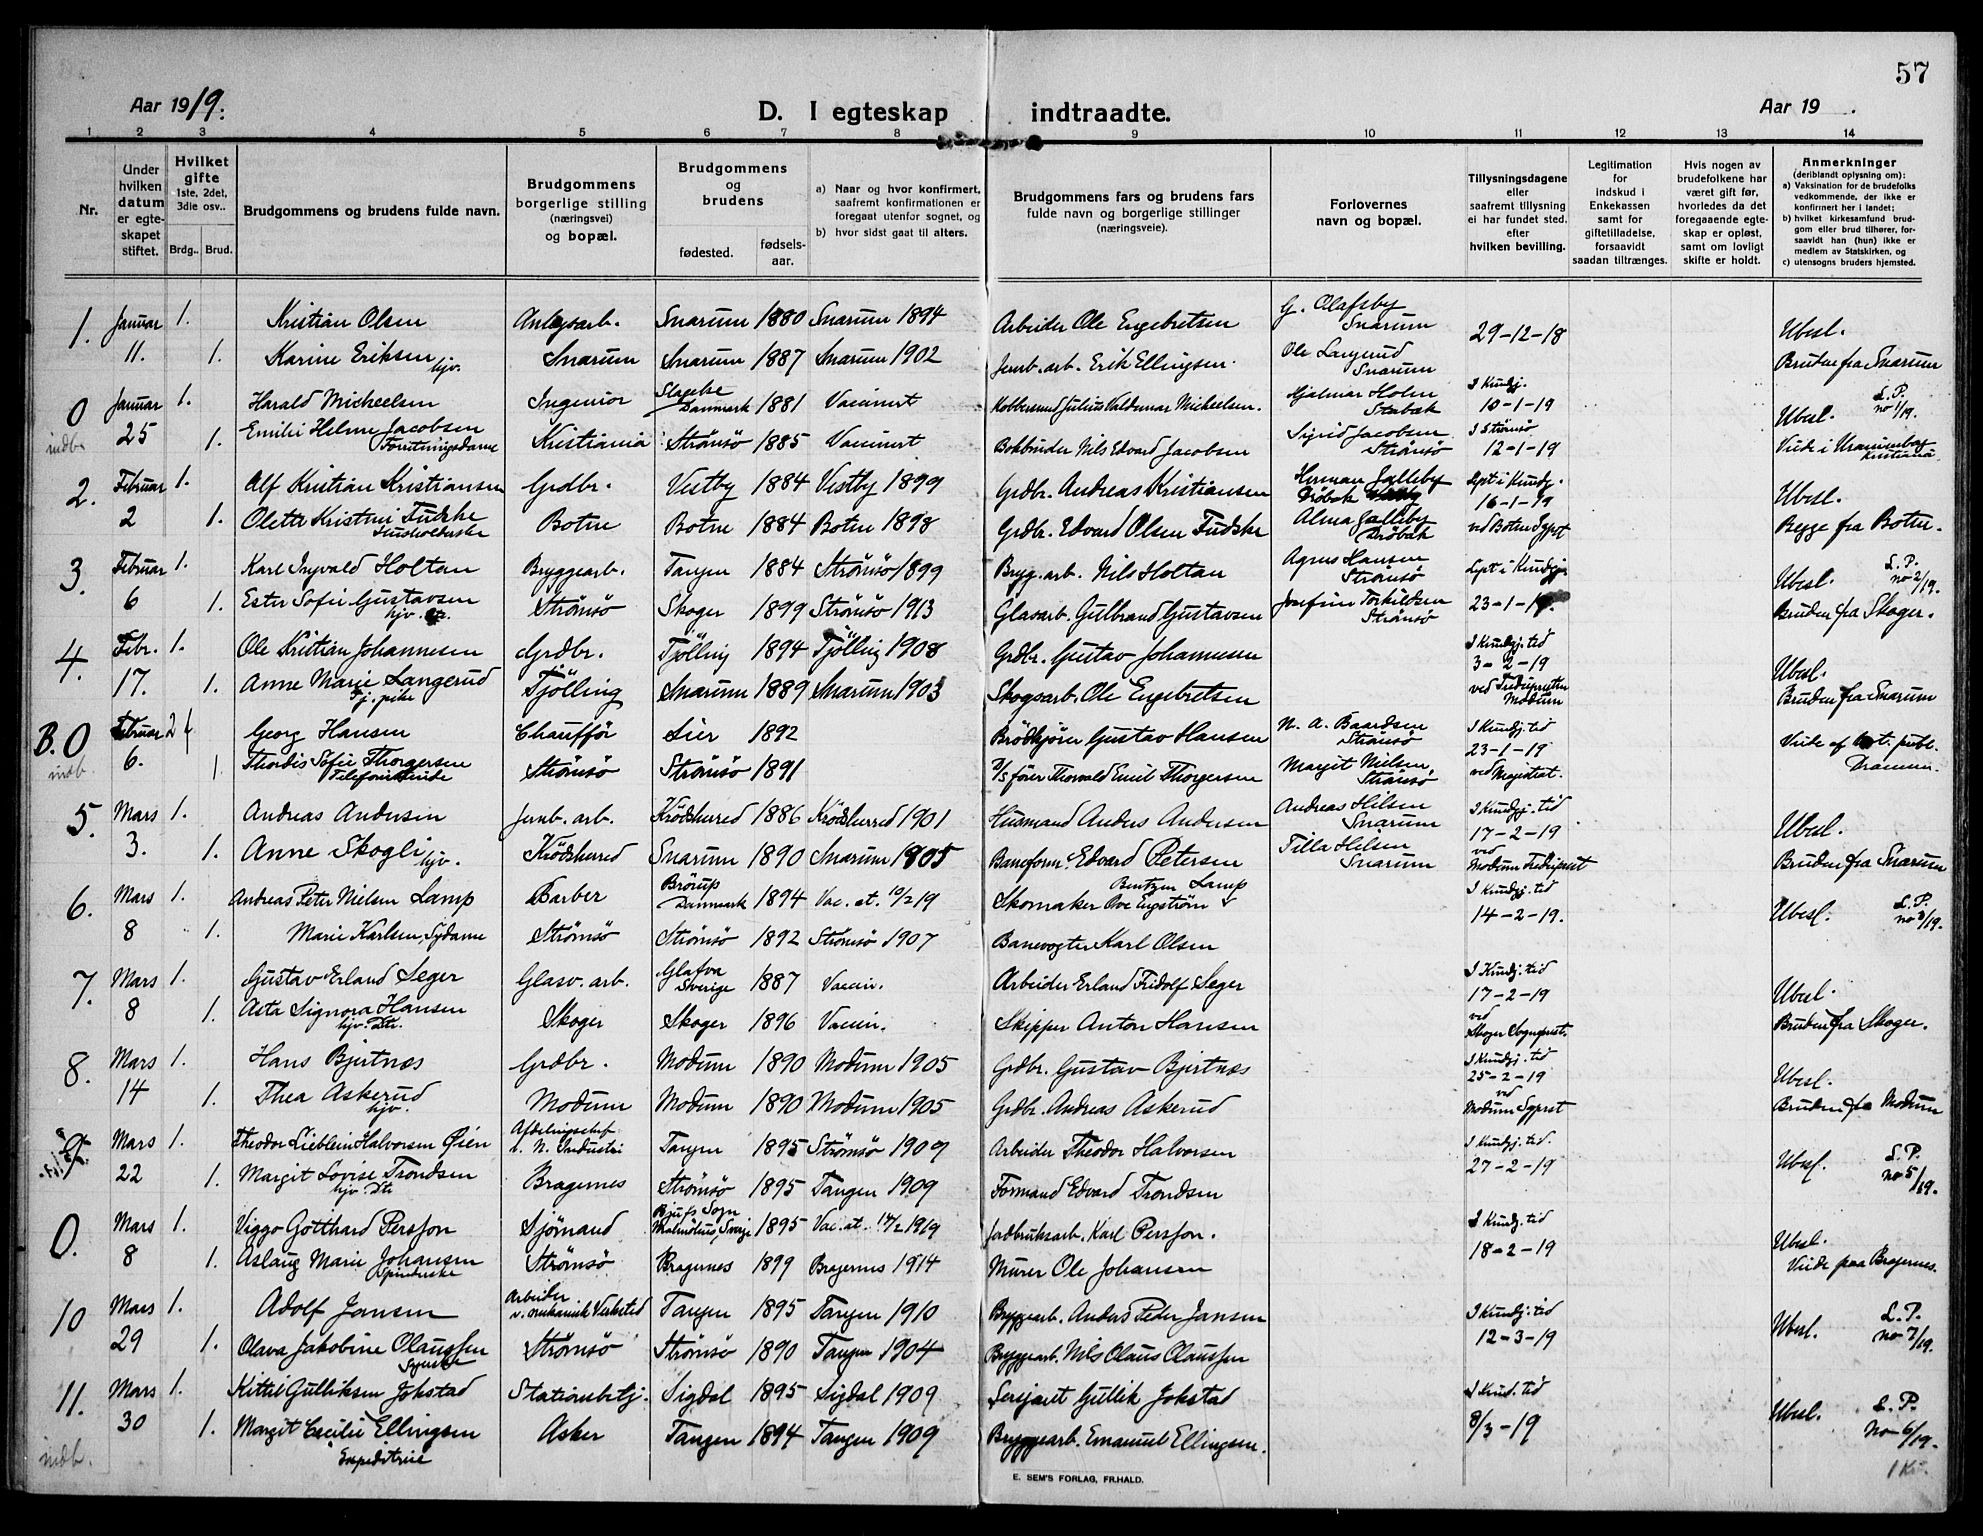 57
Aar 1919. D. I egteskap indtraadte. Aar 19 .
1 2 3 4 5 6 7 8 9 10 11 12 13 14
Nr.
Under hvilken datum er egte-skapet stiftet.
Hvilket gifte 1ste, 2det, 3die osv..
Brdg.. Brud.
Brudgommens og brudens fulde navn.
Brudgommens borgerlige stilling (næringsvei) og bopæl.
Brudgommens og brudens
fødested. fødsels-aar.
a) Naar og hvor konfirmert, saafremt konfirmationen er foregaat utenfor sognet, og
b) hvor sidst gaat til alters.
Brudgommens fars og brudens fars fulde navn og borgerlige stillinger (næringsveie).
Forlovernes navn og bopæl.
Tillysningsdagene eller saafremt tillysning ei har fundet sted. efter hvilken bevilling.
Legitimation for indskud i Enkekassen samt for giftetilladelse, forsaavidt saadan tiltrænges.
Hvis nogen av brudefolkene har været gift før, hvorledes da det foregaaende egte-skap er opløst, samt om lovligt skifte er holdt.
Anmerkninger (deriblandt oplysning om):
a) Vaksination for de brudefolks vedkommende, der ikke er konfirmert her i landet;
b) hvilket kirkesamfund brud-gom eller brud tilhører, for-saavidt han (hun) ikke er medlem av Statskirken, og
c) utensogns bruders hjemsted.
1. Januar 1. Kristian Olsen Anlegsarb. Snarum 1880 Snarum 1894 Arbeider Ole Engebretsen G. Olafsby Snarum 29-12-18 Ubesl.
11. 1. Karine Eriksen hjv. Snarum Snarum 1887 Snarum 1902 Jernb. arb. Erik Ellingsen. Ole Langerud Snarum Bruden fra Snarum
0 Januar 1. Harald Micheelsen Ingeniør Danmark 1881 Vaccinert Kobbersmed Julius Valdemar Micheelsen. Hjalmar Holm Stabæk I Kundgj. 10-1-19 Ubesl. L.P. no 1/19.
indb. 25 1. Emilie Helene Jacobsen Forretningsdame Kristiania Strömsö 1885 Vaccinert Bokbinder Nils Edvard Jacobsen Sigrid Jacobsen Strömsö I Strömsö 12-1-19 Viede i Uranienborg Kristiania.
2. Februar 1. Alf Kristian Kristiansen Grdbr. Vestby 1884 Vestby 1899 Grdbr. Andreas Kristiansen Herman Jalleby Dröbak Lyst i Kundgj. 16-1-19 Ubesl.
2 1. Olette Kristine Fudske Husholderske Botne Botne 1884 Botne 1898 Grdbr. Edvard Olsen Fudske Alma Jalleby Dröbak ved Botne Sgprst Begge fra Botne.
3. Februar 1. Karl Ingvald Holtan Bryggearb. Tangen 1884 Strömsö 1899 Bryg. arb. Nils Holtan Agnes Hansen Strömsö Lyst i Kundgj. Ubesl. L.P. no 2/19.
6 1. Ester Sofie Gustavsen hjv. Strömsö Skoger 1899 Strömsö 1913 Glasarb. Gulbrand Gustavsen Josefine Torkildsen Strömsö 23-1-19. Bruden fra Skoger.
4. Febr. 1. Ole Kristian Johannesen Grdbr. Tjölling 1894 Tjölling 1908 Grdbr. Gustav Johannesen I Kundgj. tid 3-2-19 Ubesl.
17. 1. Anne Marie Langerud Tj. pike Tjölling Snarum 1889 Snarum 1903 Skogsarb. Ole Engebretsen ved Modum Bruden fra Snarum
B. 0 Februar 2 Georg Hansen Chaufför Lier 1892 Brödkjörer Gustav Hansen N. A. Baardsen Strömsö I Kundgj. tid 23-1-19
indb. 6. 1 Thordis Sofie Thorgersen Telefonistinde Strömsö Strömsö 1891 D/S förer Thorvald Emil Thorgersen Margit Nielsen Strömsö ved Magistrat. Viede af not. publ. Drammen.
5. Mars 1. Andreas Andersen Jernb. arb. Krödsherred 1886 Krödsherred 1901 Husmand Anders Andersen Andreas Hilsen Snarum I Kundgj. tid 17-2-19 Ubesl.
3. 1. Anne Skogli hjv. Krödsherred Snarum 1890 Snarum 1905 Baneform. Edvard Petersen Tilla Hilsen Snarum ved Modum Bruden fra Snarum
6. Mars 1. Andreas Peter Nielsen Lamp Barber Brörup Danmark 1894 Vac. at. 10/2 19 Skomaker Ove Engström Bentzen Lamp I Kundgj. tid 14-2-19. Ubesl. L.P. no 3/19.
8 1. Marie Karlsen Sydame Strömsö Strömsö 1892 Strömsö 1907 Banevogter Karl Olsen
7. Mars 1. Gustav Erland Seger Glasv. arb. Glafva Sverige 1887 Vaccin. Arbeider Erland Fridolf Seger I Kundgj. tid 17-2-19 Ubesl.
8 1. Asta Signora Hansen hjv. Dtr. Skoger Skoger 1896 Vaccin. Skipper Anton Hansen ved Skoger Sogneprst. Bruden fra Skoger.
8. Mars 1. Hans Bjertnæs Grdbr. Modum 1890 Modum 1905 Grdbr. Gustav Bjertnæs I Kundgj. tid 25-2-19 Ubesl.
14 1. Thea Askerud hjv. Modum Modum 1890 Modum 1905 Grdbr. Andreas Askerud ved Modum Sgprst Bruden fra Modum
9. Mars 1. Theodor Lieblein Halvorsen Öien Afdelingschef v. N. Industri Tangen 1895 Strömsö 1909 Arbeider Theodor Halvorsen I Kundgj. tid. 27-2-19 Ubesl. L.P. no 5/19.
22 1. Margit Lovise Trondsen hjv. Dtr Bragernes Strömsö 1895 Tangen 1909 Formand Edvard Trondsen
0. Mars 1. Viggo Gotthard Persson Sjömand Bjufs Sogn Malmöhus, Sverige 1895 Vac. at. 14/2 1919 Jordbruksarb. Karl Persson. I Kundgj. tid 18-2-19 Ubesl.
8 1. Aslaug Marie Johansen Spinderske Strömsö Bragernes 1899 Bragernes 1914 Murer Ole Johansen Viede paa Bragernes.
10 Mars 1. Adolf Jansen Arbeider v. mekanisk Verksted Tangen 1895 Tangen 1910 Bryggearb. Anders Peder Jansen I Kundgj. tid 12-3-19 Ubesl. L.P. no 7/19.
29 1. Olava Jakobine Olaussen Syerske Strömsö Strömsö 1890 Tangen 1904 Bryggearb. Nils Olaus Olaussen
11. Mars 1. Kittil Gulliksen Jokstad Stationsbetj. Sigdal 1895 Sigdal 1909 Sersjant Gullik Jokstad I Kund. tid 8/3-19 Ubesl. L.P. no 6/19.
indb. 30 1. Margit Cecilie Ellingsen Expeditrice Asker Tangen 1894 Tangen 1909 Bryggearb. Emanuel Ellingsen.
E. SEM'S FORLAG, FR.HALD.